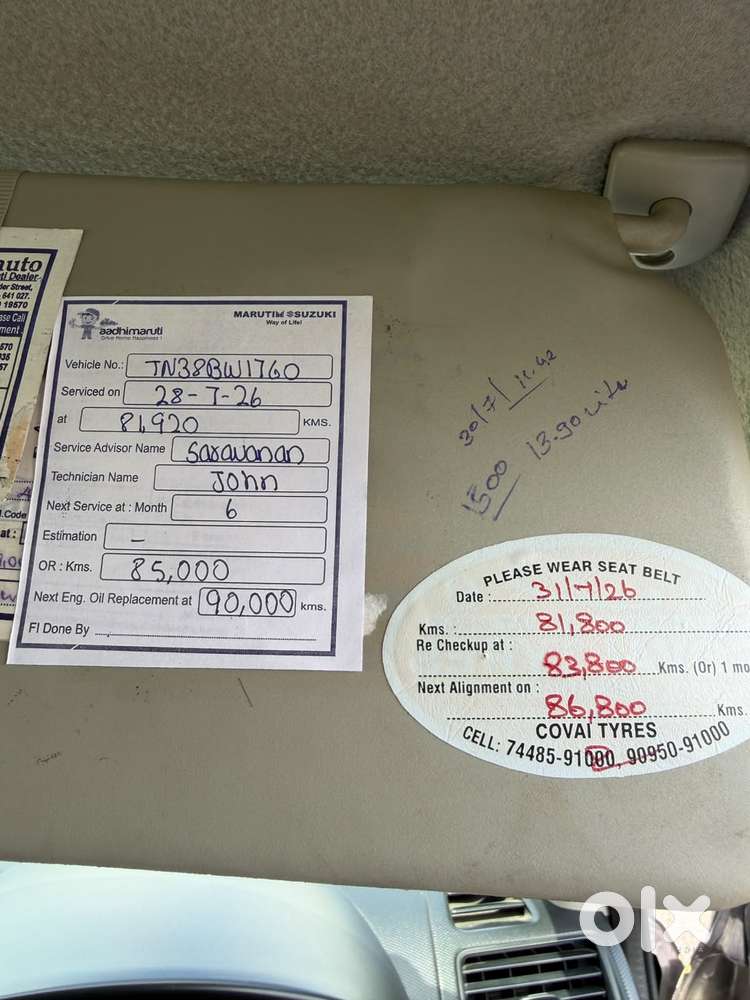 auto
ti Dealer
der Street,
641 027.
19570
ase Call
ment
570
l.Code
at :
MARUTI SUZUKI
Way of Life!
aadhimaruti
Drive Home Happiness !
Vehicle No.: TN38BW1760
Serviced on 28-7-26
at 81,920 KMS.
Service Advisor Name Saravanan
Technician Name John
Next Service at : Month 6
Estimation -
OR : Kms. 85,000
Next Eng. Oil Replacement at 90,000 kms.
FI Done By
30/7/ 11.42
1500 13.90
PLEASE WEAR SEAT BELT
Date : 31/7/26
Kms. : 81,800
Re Checkup at :
83,800 Kms. (Or) 1 mo
Next Alignment on :
86,800 Kms.
COVAI TYRES
CELL: 74485-91000, 90950-91000
olx